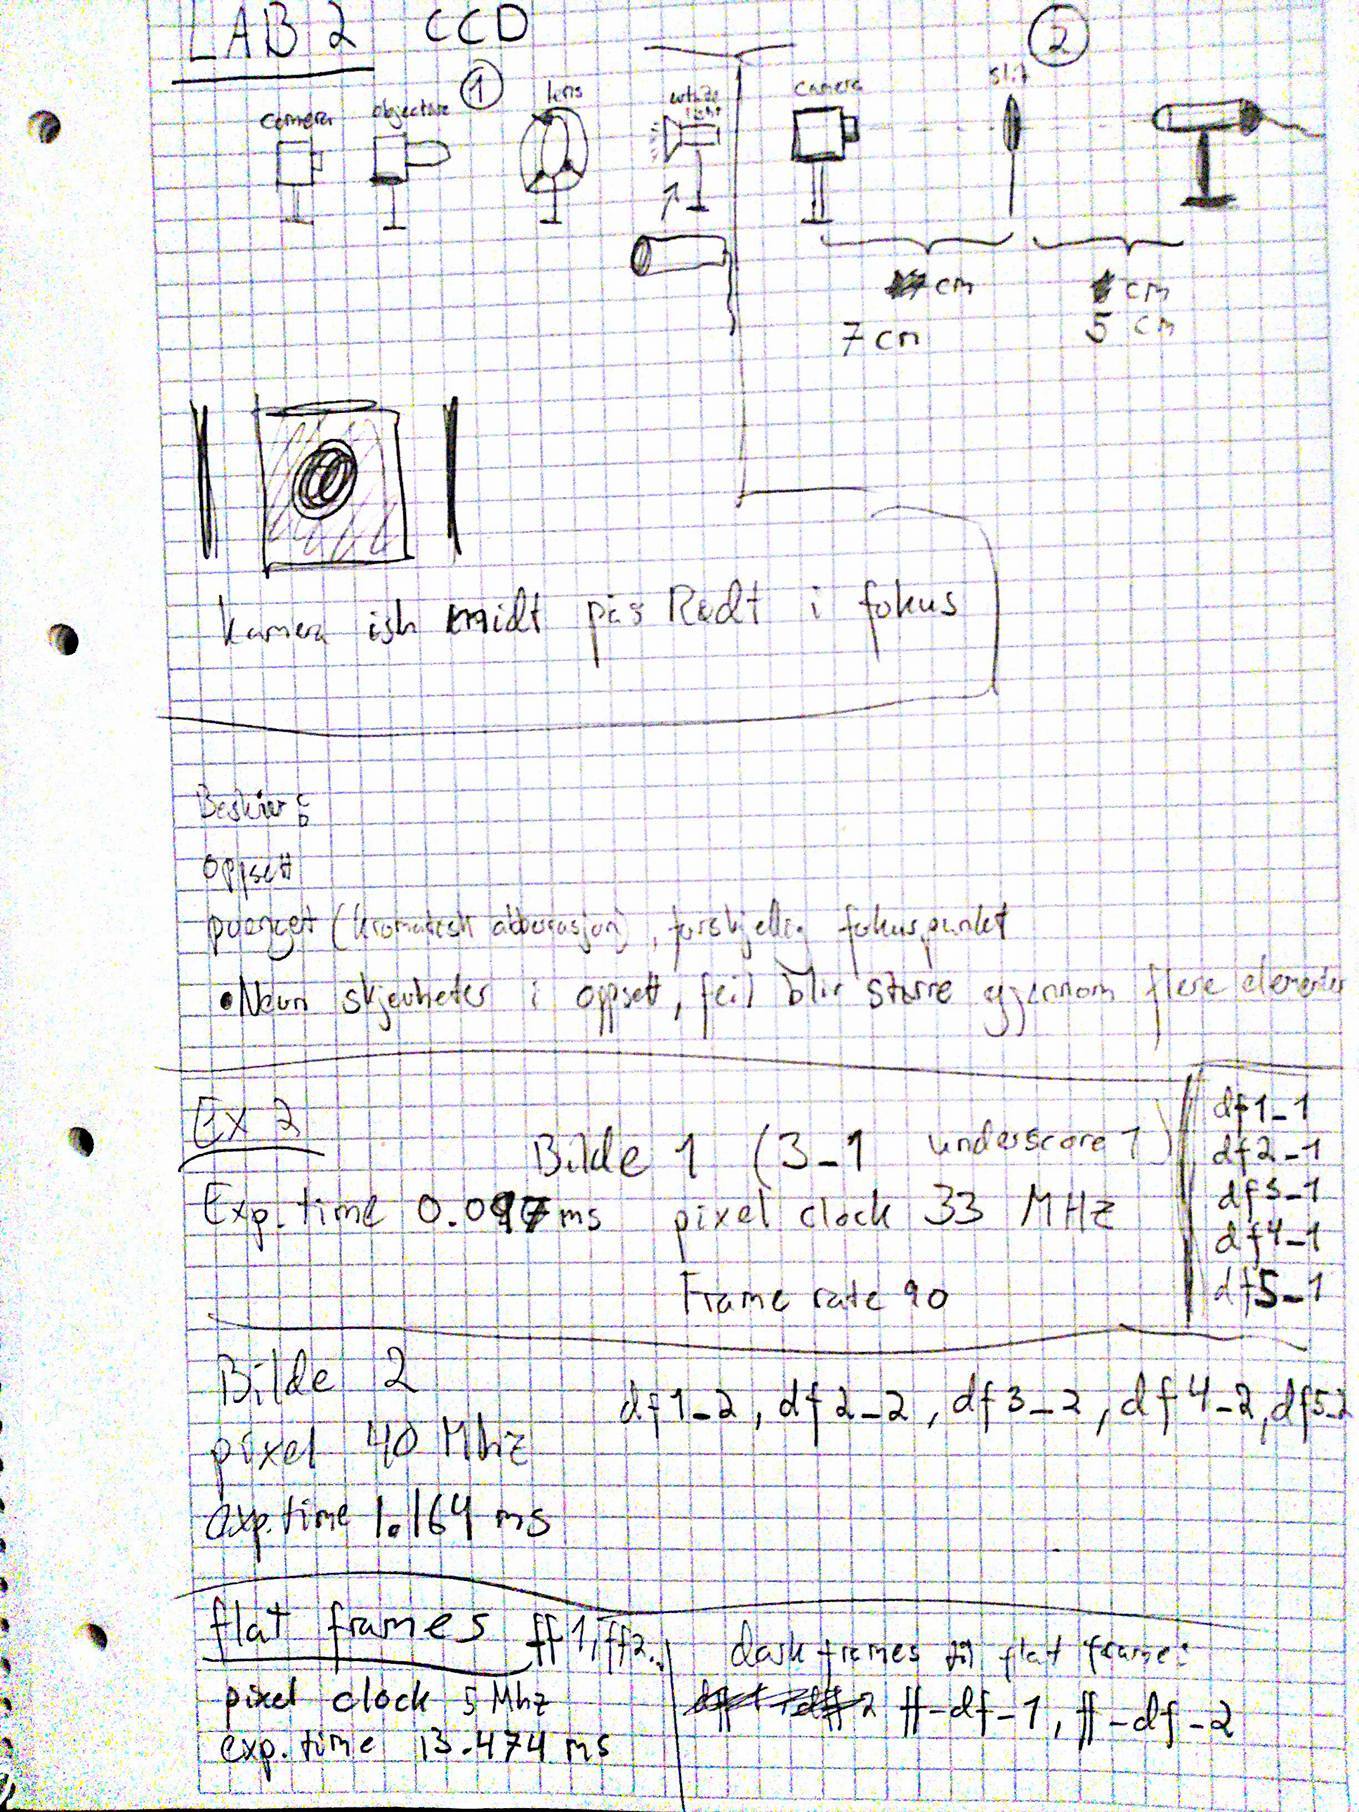 LAB 2 CCD
①
②
camera
objective
lens
white
light
camera
slit
cm
7 cm
cm
5 cm
kamera ish midt på, Rødt i fokus
Beskriv:
oppsett
poenget (kromatisk abberasjon), forskjellig fokuspunkt
• Nevn skjevheter i oppsett, feil blir større gjennom flere elementer
Ex 2
Bilde 1 (3_1 underscore 1)
Exp. time 0.097 ms pixel clock 33 MHz
Frame rate 90
df1_1
df2_1
df3_1
df4_1
df5_1
Bilde 2
df1_2, df2_2, df3_2, df4_2, df5_2
pixel 40 Mhz
exp. time 1.164 ms
flat frames ff1, ff2..
pixel clock 5 Mhz
exp. time 13.474 ms
dark frames for flat frame:
ff-df-1, ff-df-2